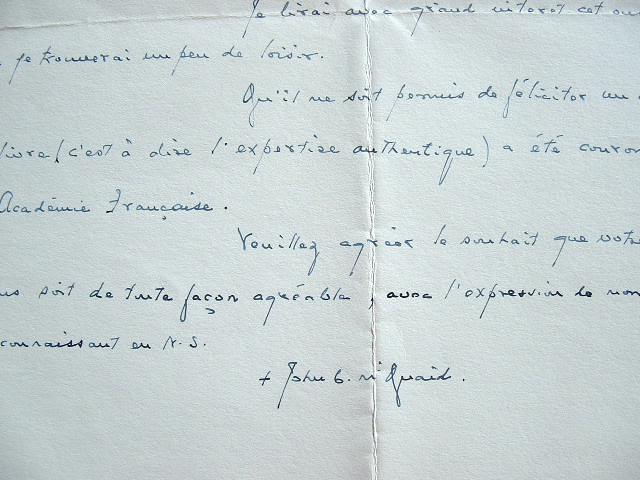 Je lirai avec grand intérêt cet ou
je trouverai un peu de loisir.
Qu'il me soit permis de féliciter un
livre (c'est à dire l'expertise authentique) a été couron
Académie Française.
Veuillez agréer le souhait que votre
us soit de toute façon agréable, avec l'expression de mon
connaissant en N. S.
+ John C. McQuaid.